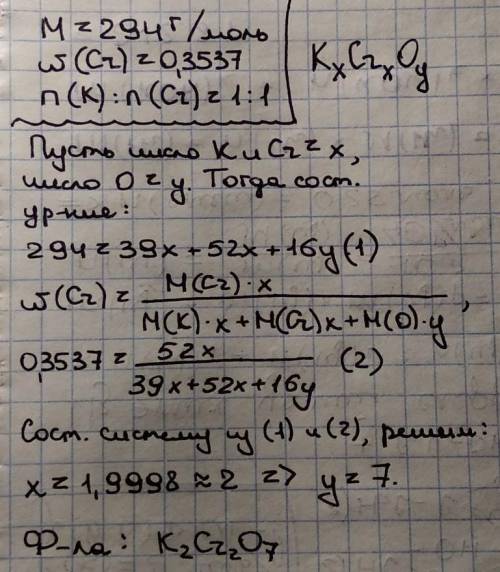 M = 294 г/моль
ω(Cr) = 0,3537
n(K) : n(Cr) = 1:1
KₓCrₓOᵧ
Пусть число K и Cr = x,
число O = y. Тогда сост.
ур-ние:
294 = 39x + 52x + 16y (1)
ω(Cr) = M(Cr)·x / M(K)·x + M(Cr)x + M(O)·y ,
0,3537 = 52x / 39x + 52x + 16y (2)
Сост. систему из (1) и (2), решим:
x = 1,9998 ≈ 2 => y = 7.
Ф-ла: K₂Cr₂O₇